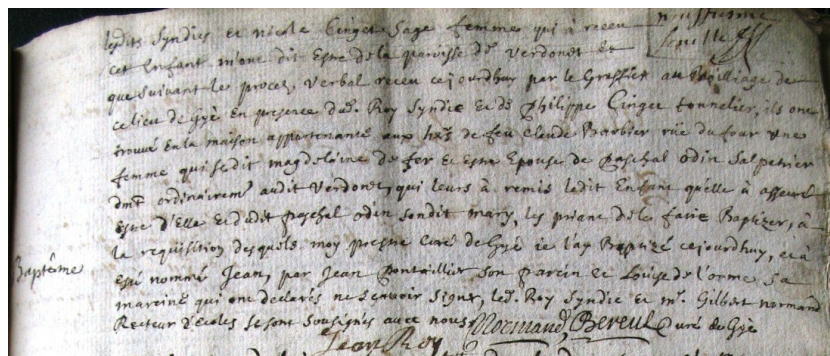 neufiesme
feuille
lesdits Syndics et nicole Cinget Sage femme qui a receu
cet Enfant m'ont dit Estre de la paroisse de Verdonet et
que suivant le procez verbal receu cejourdhuy par le Greffier au Bailliage de
ce lieu de Gyé en presence dud. Roy Syndic et de Philippe Cinget tonnelier, ils ont
trouvé en la maison appartenante aux hrs de feu Claude Barbier rüe du four une
femme qui se dit magdelaine de fer et estre Epouse de Paschal odin Salpetrier
dmt ordinairemt audit Verdonet, qui leurs à remis ledit Enfant qu'elle à asseuré
Estre d'Elle et dudit paschal odin sondit mary, les priant de le faire Baptizer, à
la requisition desquels moy prestre Curé de Gyé ie l'ay Baptizé cejourdhuy, et à
Baptême
Esté nommé Jean, par Jean Pontaillier son parcin et Louise de l'orme sa
marcine qui ont declarés ne scavoir signer, led. Roy Syndic et mr. Gilbert normand
Recteur d'écoles se sont sousignés avec nous Normand, Bereul Curé de Gyé
Jean Roy